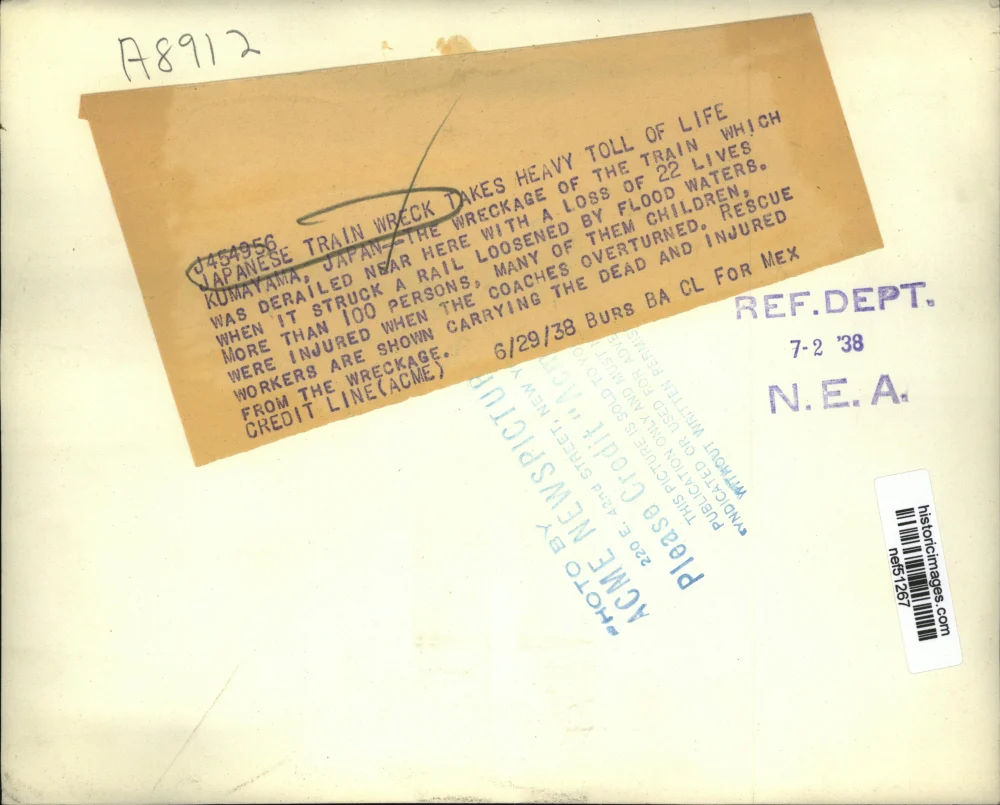 A8912
J454956
JAPANESE TRAIN WRECK TAKES HEAVY TOLL OF LIFE
KUMAYAMA, JAPAN--THE WRECKAGE OF THE TRAIN WHICH
WAS DERAILED NEAR HERE WITH A LOSS OF 22 LIVES
WHEN IT STRUCK A RAIL LOOSENED BY FLOOD WATERS.
MORE THAN 100 PERSONS, MANY OF THEM CHILDREN,
WERE INJURED WHEN THE COACHES OVERTURNED. RESCUE
WORKERS ARE SHOWN CARRYING THE DEAD AND INJURED
FROM THE WRECKAGE.
CREDIT LINE(ACME) 6/29/38 BURS BA CL FOR MEX
REF. DEPT.
7-2 '38
N. E. A.
PHOTO BY
ACME NEWSPICTUR
220 E. 42ND STREET, NEW Y
Please Credit "Acm
THIS PICTURE IS SOLD TO YO
PUBLICATION ONLY AND MUST
SYNDICATED OR USED FOR ADVE
WITHOUT WRITTEN PERMIS
historicimages.com
nef51267